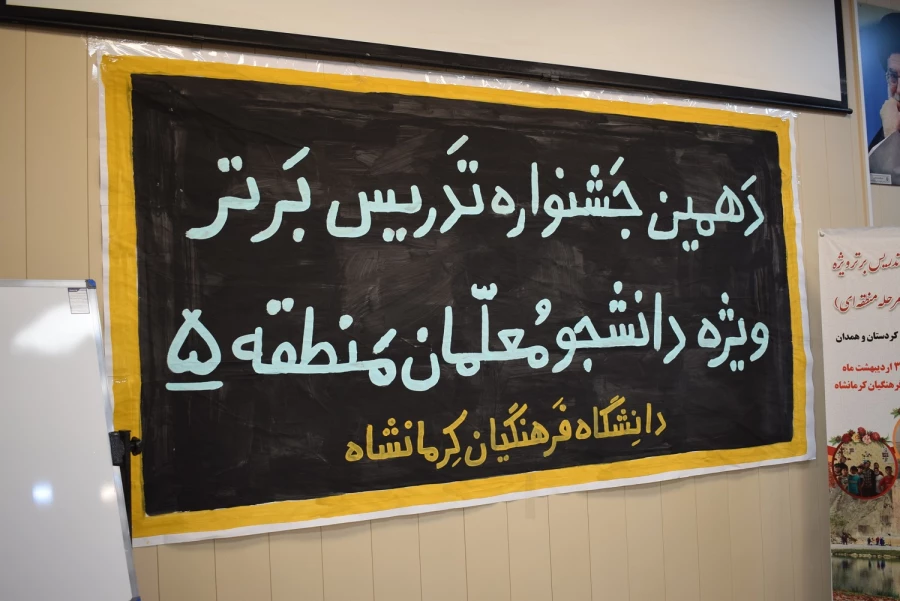 دَهمین جَشنواره تَدریس بَرتر
ویژه دانشجو مُعلّمان مَنطقه ۵
دانِشگاه فَرهنگیان کِرمانشاه
تدریس برتر ویژه
مرحله منطقه ای)
کردستان و همدان
اردیبهشت ماه
فرهنگیان کرمانشاه